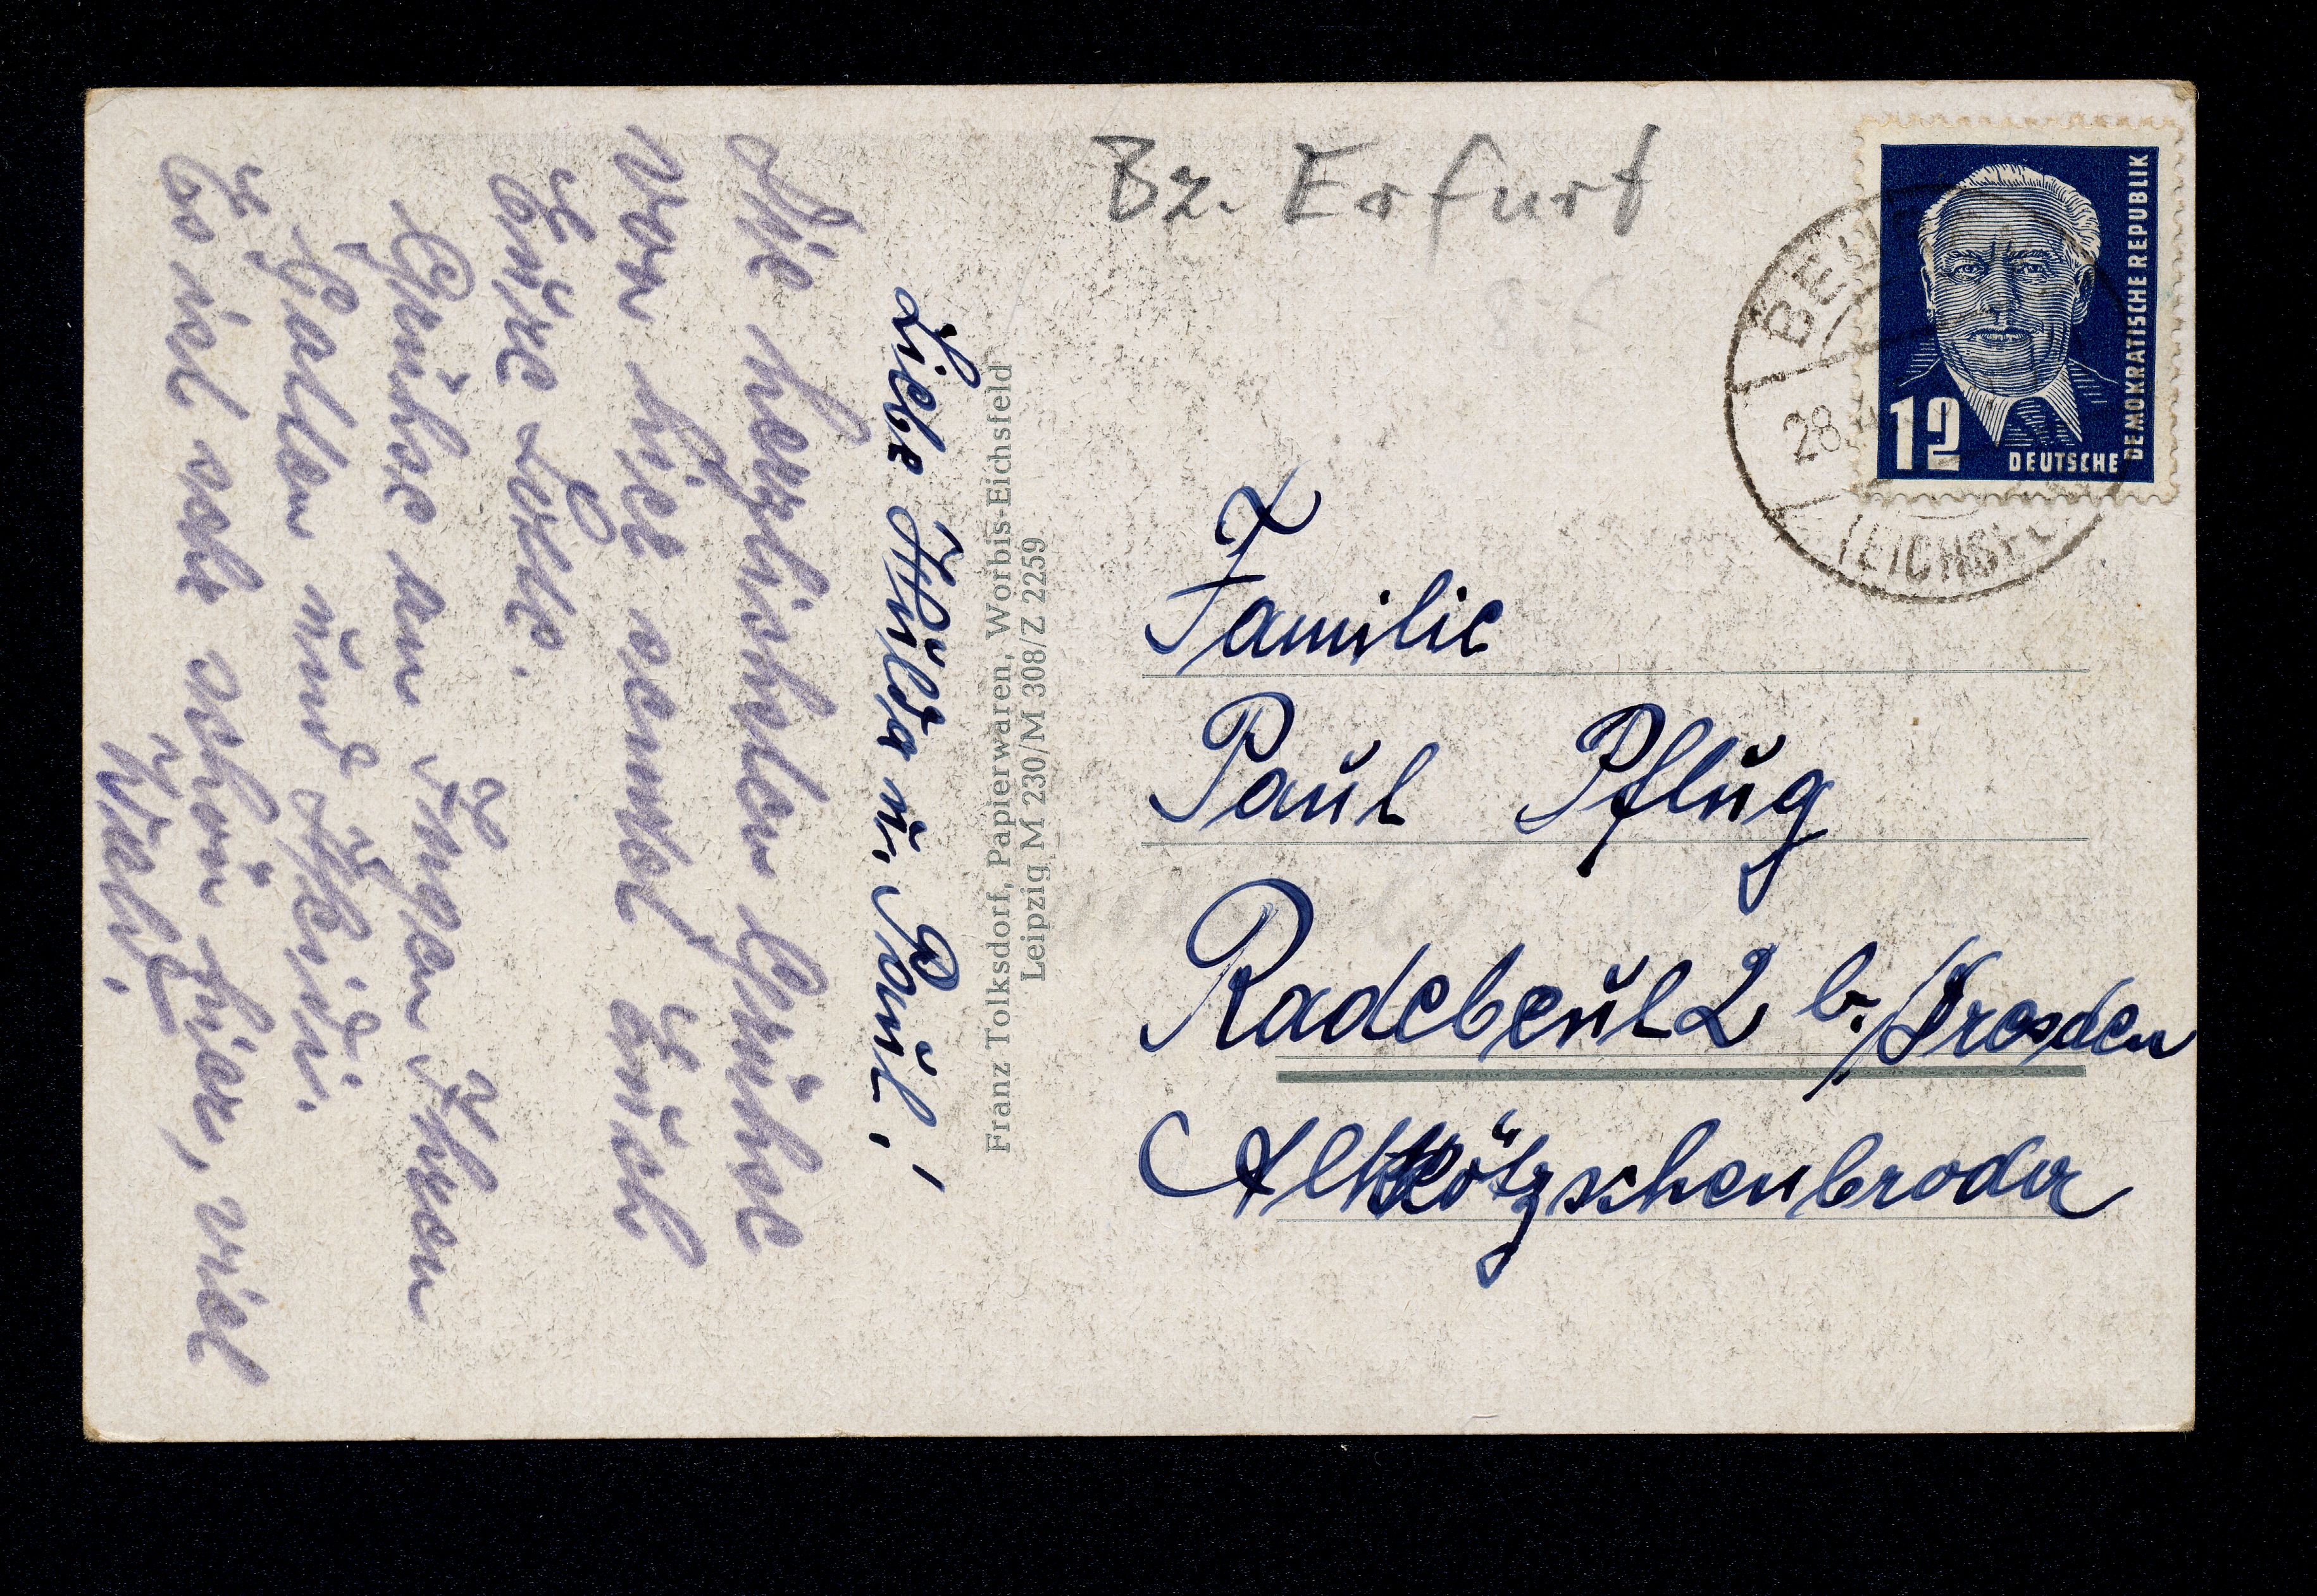 Bz. Erfurt
8,5
12
DEUTSCHE
DEMOKRATISCHE REPUBLIK
BEU
28.
(EICHSF
Liebe Hulda u. Paul!
Die herzlichsten Grüße
von hier sendet Euch
Eure Lotte.
Grüße an Ingen Ihren
Gatten und Heidi.
Es ist sehr schön hier, viel
Franz Tolksdorf, Papierwaren, Worbis-Eichsfeld
Leipzig M 230/M 308/Z 2259
Familie
Paul Pflug
Radebeul 2 b./Dresden
Altkötzschenbroda